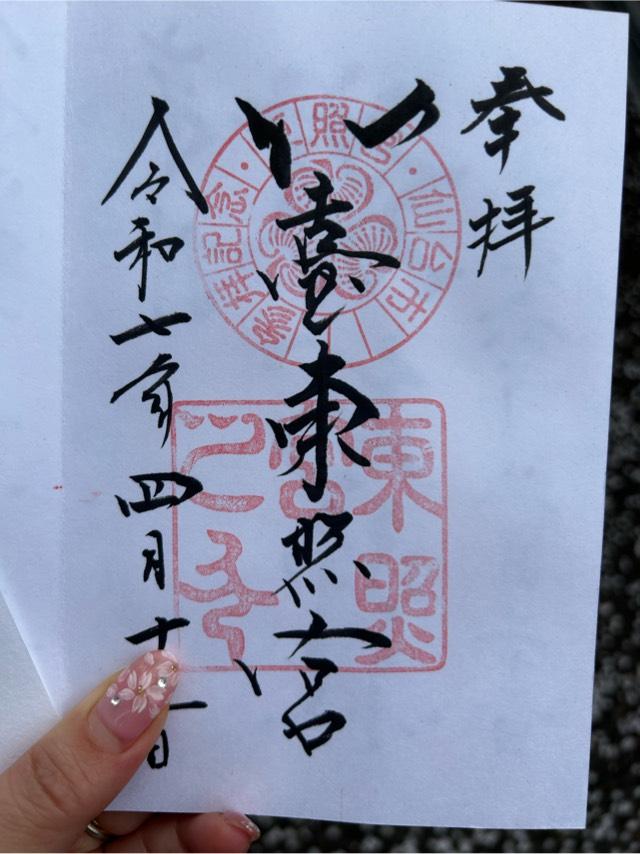 奉拝
仙臺東照宮
令和七年四月十日
東照宮・仙台市
参拝記念・
東照宮之印